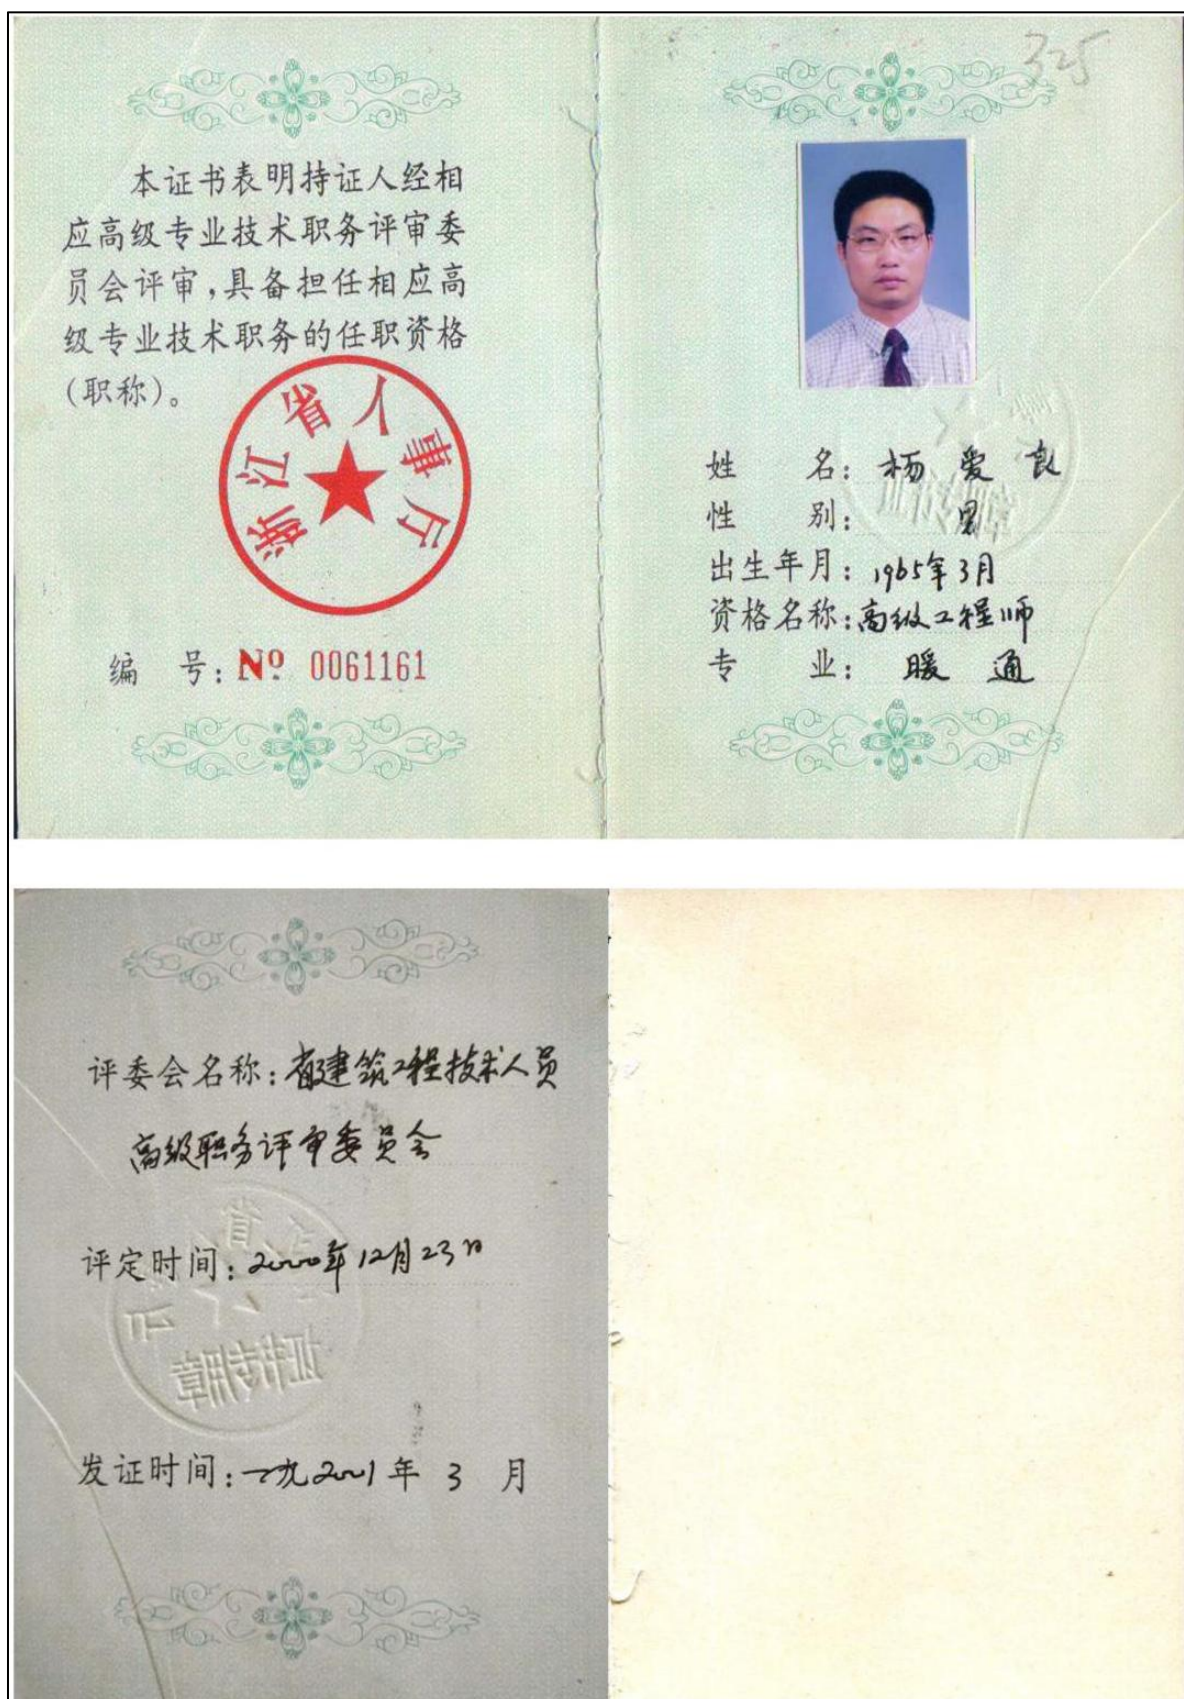 本证书表明持证人经相
应高级专业技术职务评审委
员会评审，具备担任相应高
级专业技术职务的任职资格
（职称）。
浙江省人事厅
编 号：№ 0061161
325
姓 名：杨爱良
性 别：男
出生年月：1965年3月
资格名称：高级工程师
专 业：暖通
证书专用章
评委会名称：省建筑工程技术人员
高级职务评审委员会
评定时间：2000年12月23日
证书专用章
发证时间：一九2001年 3 月